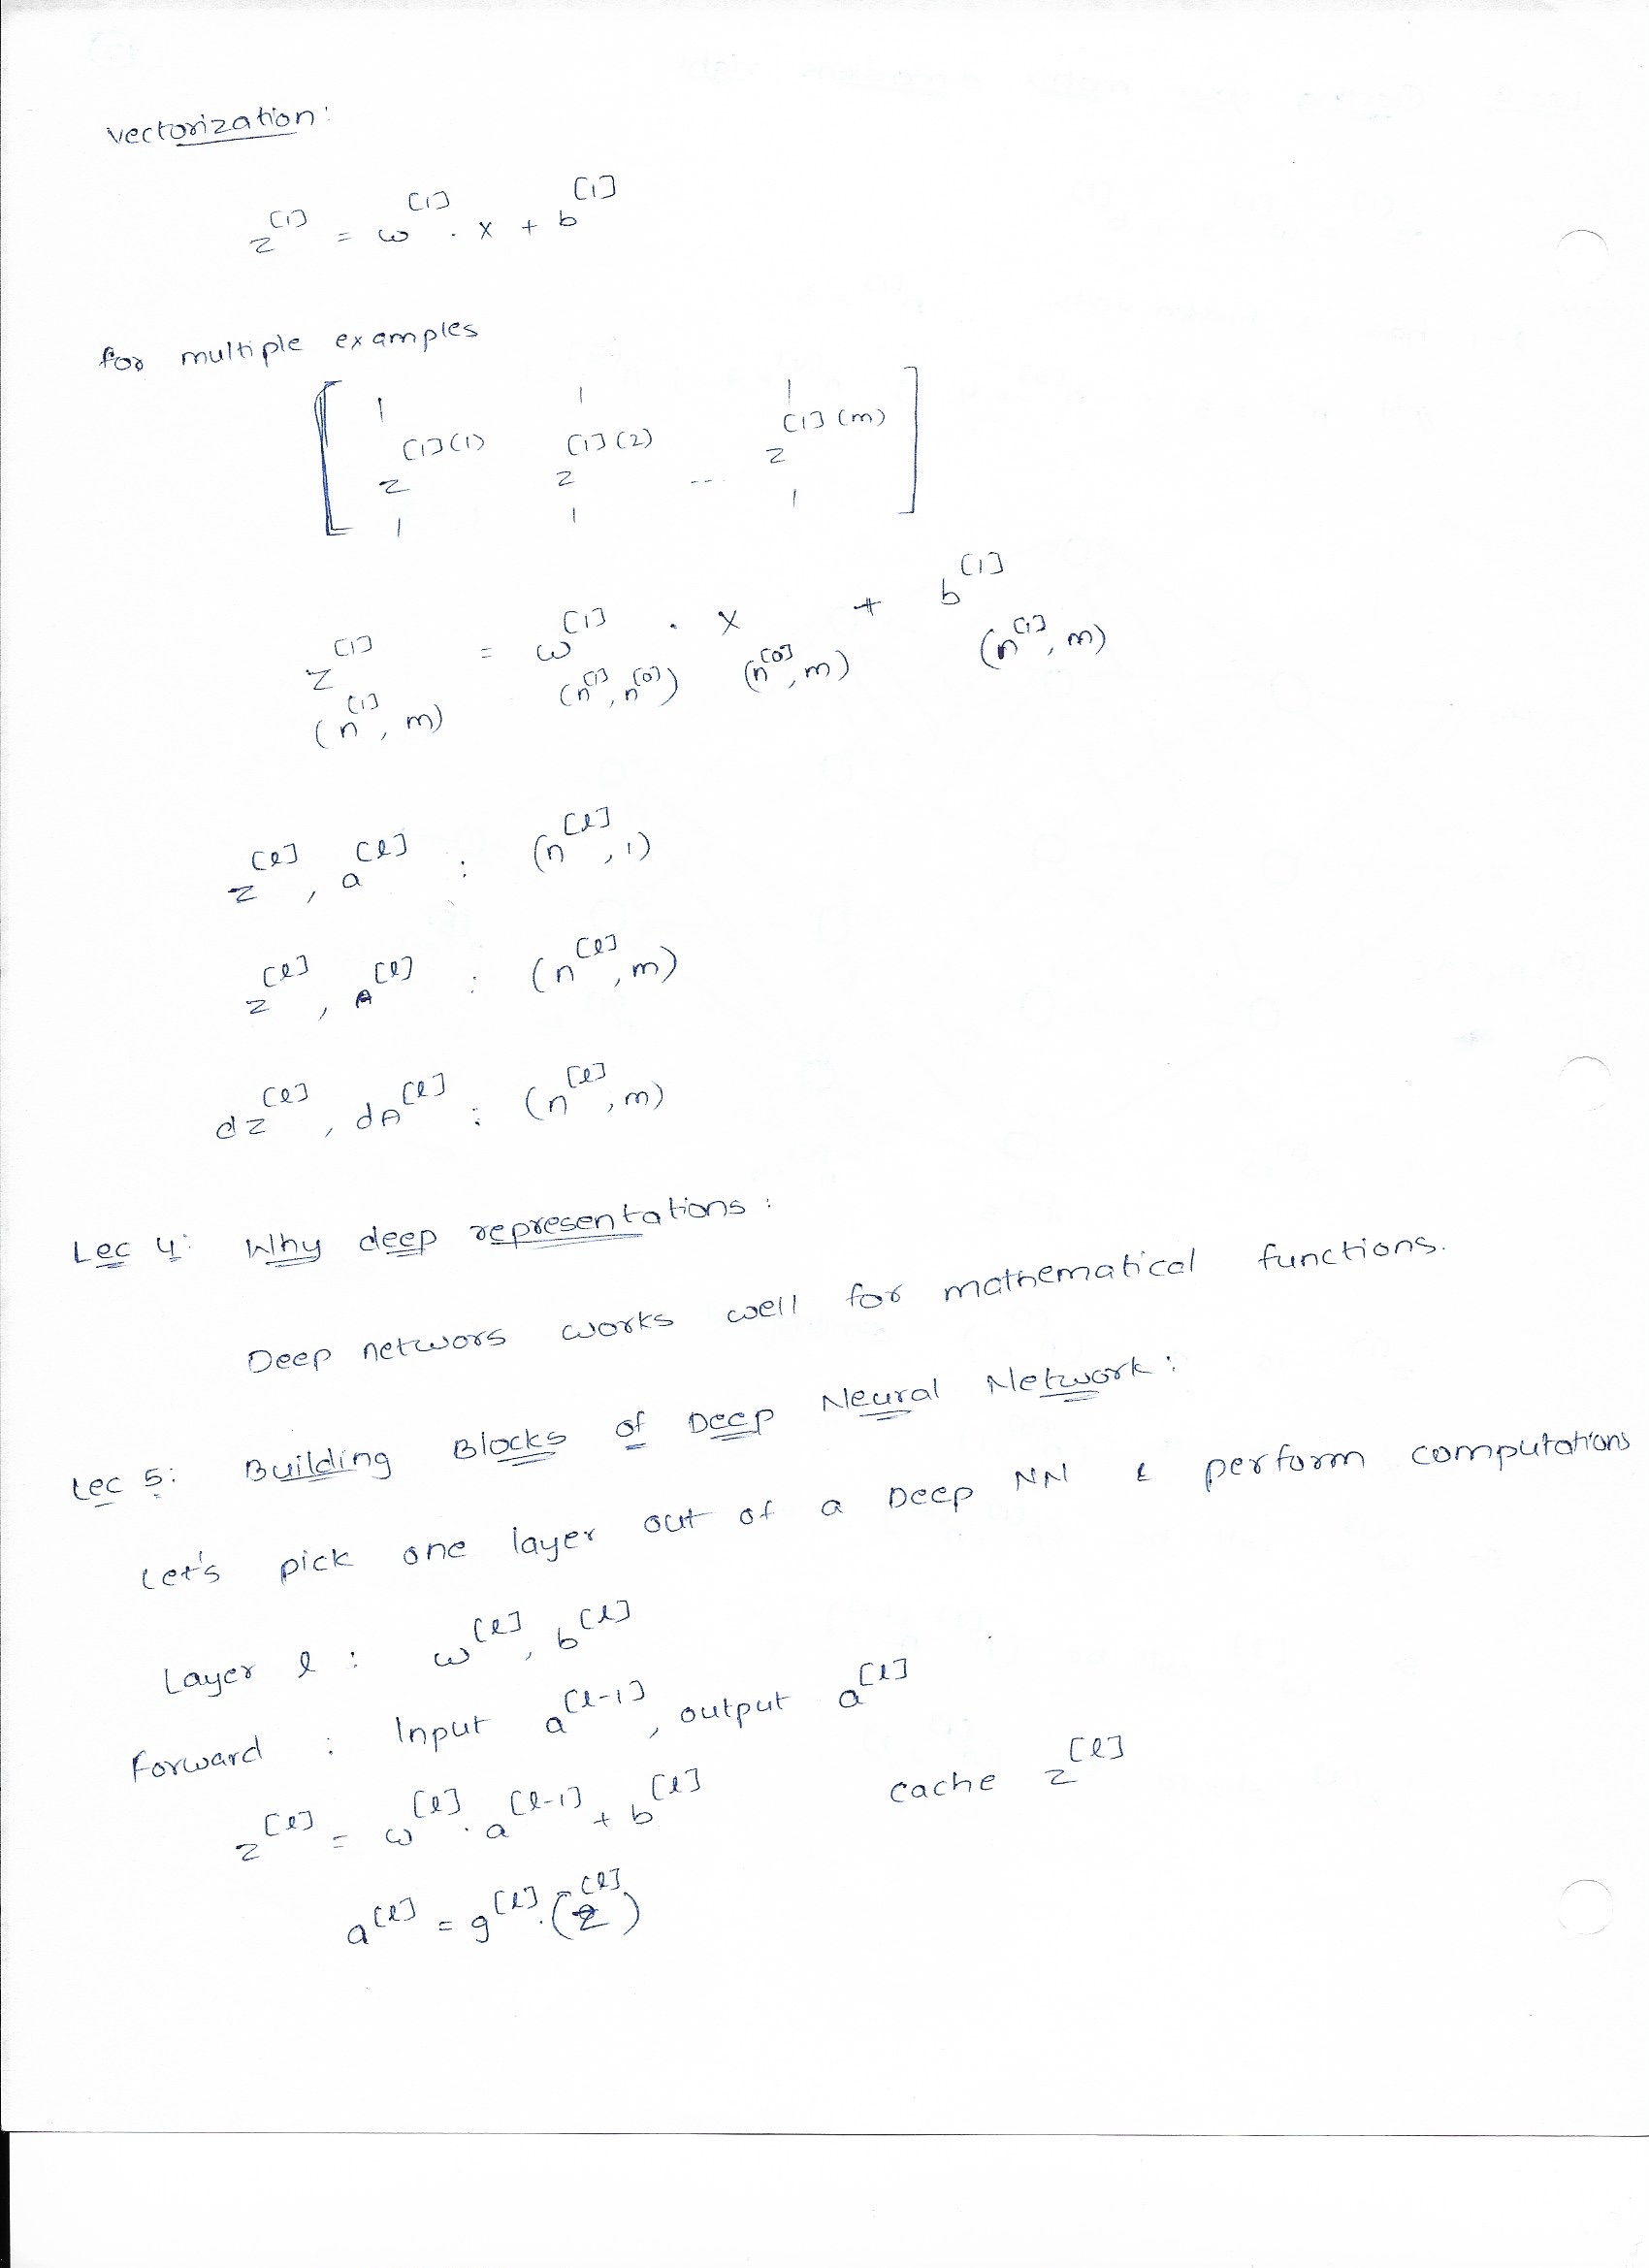 vectorization:
z^[1] = w^[1] . x + b^[1]
for multiple examples
[ | z^[1](1) |  | z^[1](2) | ... | z^[1](m) | ]
z^[1] = w^[1] . X + b^[1]
(n^[1], m) (n^[1], n^[0]) (n^[0], m) (n^[1], m)
z^[l], a^[l] : (n^[l], 1)
z^[l], A^[l] : (n^[l], m)
dz^[l], dA^[l] : (n^[l], m)
Lec 4: Why deep representations:
Deep networs works well for mathematical functions.
Lec 5: Building Blocks of Deep Neural Network:
Let's pick one layer out of a Deep NN & perform computations
Layer l : w^[l], b^[l]
Forward : Input a^[l-1], output a^[l]
z^[l] = w^[l] . a^[l-1] + b^[l] cache z^[l]
a^[l] = g^[l].(z^[l])